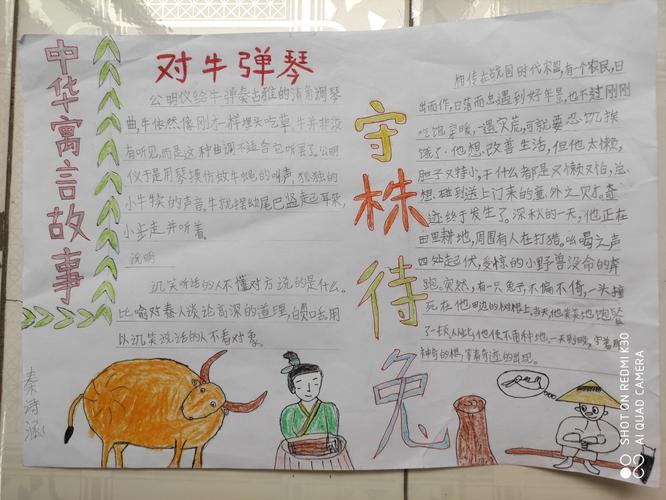 中华寓言故事
对牛弹琴
公明仪给牛弹奏古雅的清角调琴
曲,牛依然像刚才一样埋头吃草。牛并非没
有听见,而是这种曲调不适合它听罢了。公明
仪于是用琴模仿蚊牛蝇的叫声,孤独的
小牛犊的声音。牛就摆动尾巴竖起耳朵,
小步走并听着。
说明
讥笑听话的人不懂对方说的是什么。
比喻对蠢人谈论高深的道理,白费口舌用
以讥笑说话的人不看对象。
秦诗涵
守株待兔
相传在战国时代宋国,有个农民,日
出而作,日落而息遇到好年景,也不过刚刚
吃饱穿暖,一遇灾荒,可就要忍饥挨
饿了。他想改善生活,但他太懒,
胆子又特小,干什么都是又懒又怕,总
想碰到送上门来的意外之财。奇
迹终于发生了,深秋的一天,他正在
田里耕地,周围有人在打猎。吆喝之声
四处起伏,受惊的小野兽没命的奔
跑。突然,有一只兔子不偏不倚,一头撞
死在他田边的树根上。当天他美美地饱餐
了一顿。从此,他便不再种地,一天到晚,守着那
神奇的根,等着奇迹的出现。
SHOT ON REDMI K30
AI QUAD CAMERA